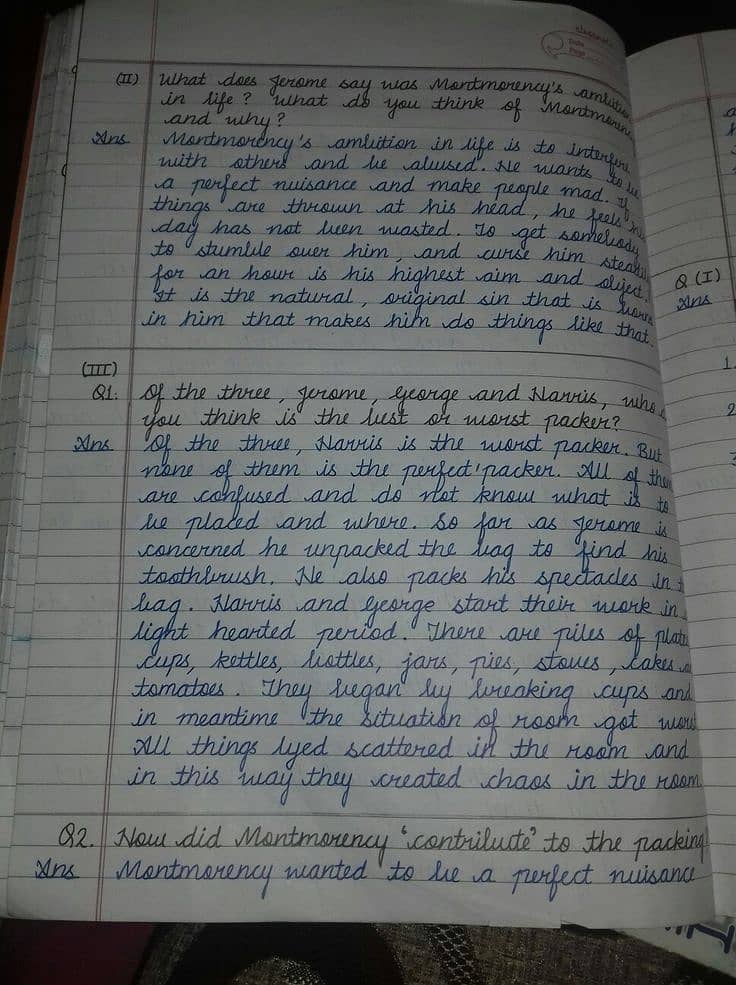 classmate
Date
Page
(II) What does Jerome say was Montmorency's ambition
in life? What do you think of Montmorency
and why?
Ans Montmorency's ambition in life is to interfere
with others and be abused. He wants to be
a perfect nuisance and make people mad. If
things are thrown at his head, he feels his
day has not been wasted. To get somebody
to stumble over him, and curse him steadily
for an hour is his highest aim and object.
It is the natural, original sin that is born
in him that makes him do things like that.
(III)
Q1. Of the three, Jerome, George and Harris, who
you think is the best or worst packer?
Ans Of the three, Harris is the worst packer. But
none of them is the perfect packer. All of them
are confused and do not know what is to
be placed and where. So far as Jerome is
concerned he unpacked the bag to find his
toothbrush. He also packs his spectacles in
bag. Harris and George start their work in
light hearted period. There are piles of plates
cups, kettles, bottles, jars, pies, stoves, cakes
tomatoes. They began by breaking cups and
in meantime the situation of room got worse
All things lyed scattered in the room and
in this way they created chaos in the room.
Q2. How did Montmorency 'contribute' to the packing
Ans Montmorency wanted to be a perfect nuisance
Q (I)
Ans
1.
2
3